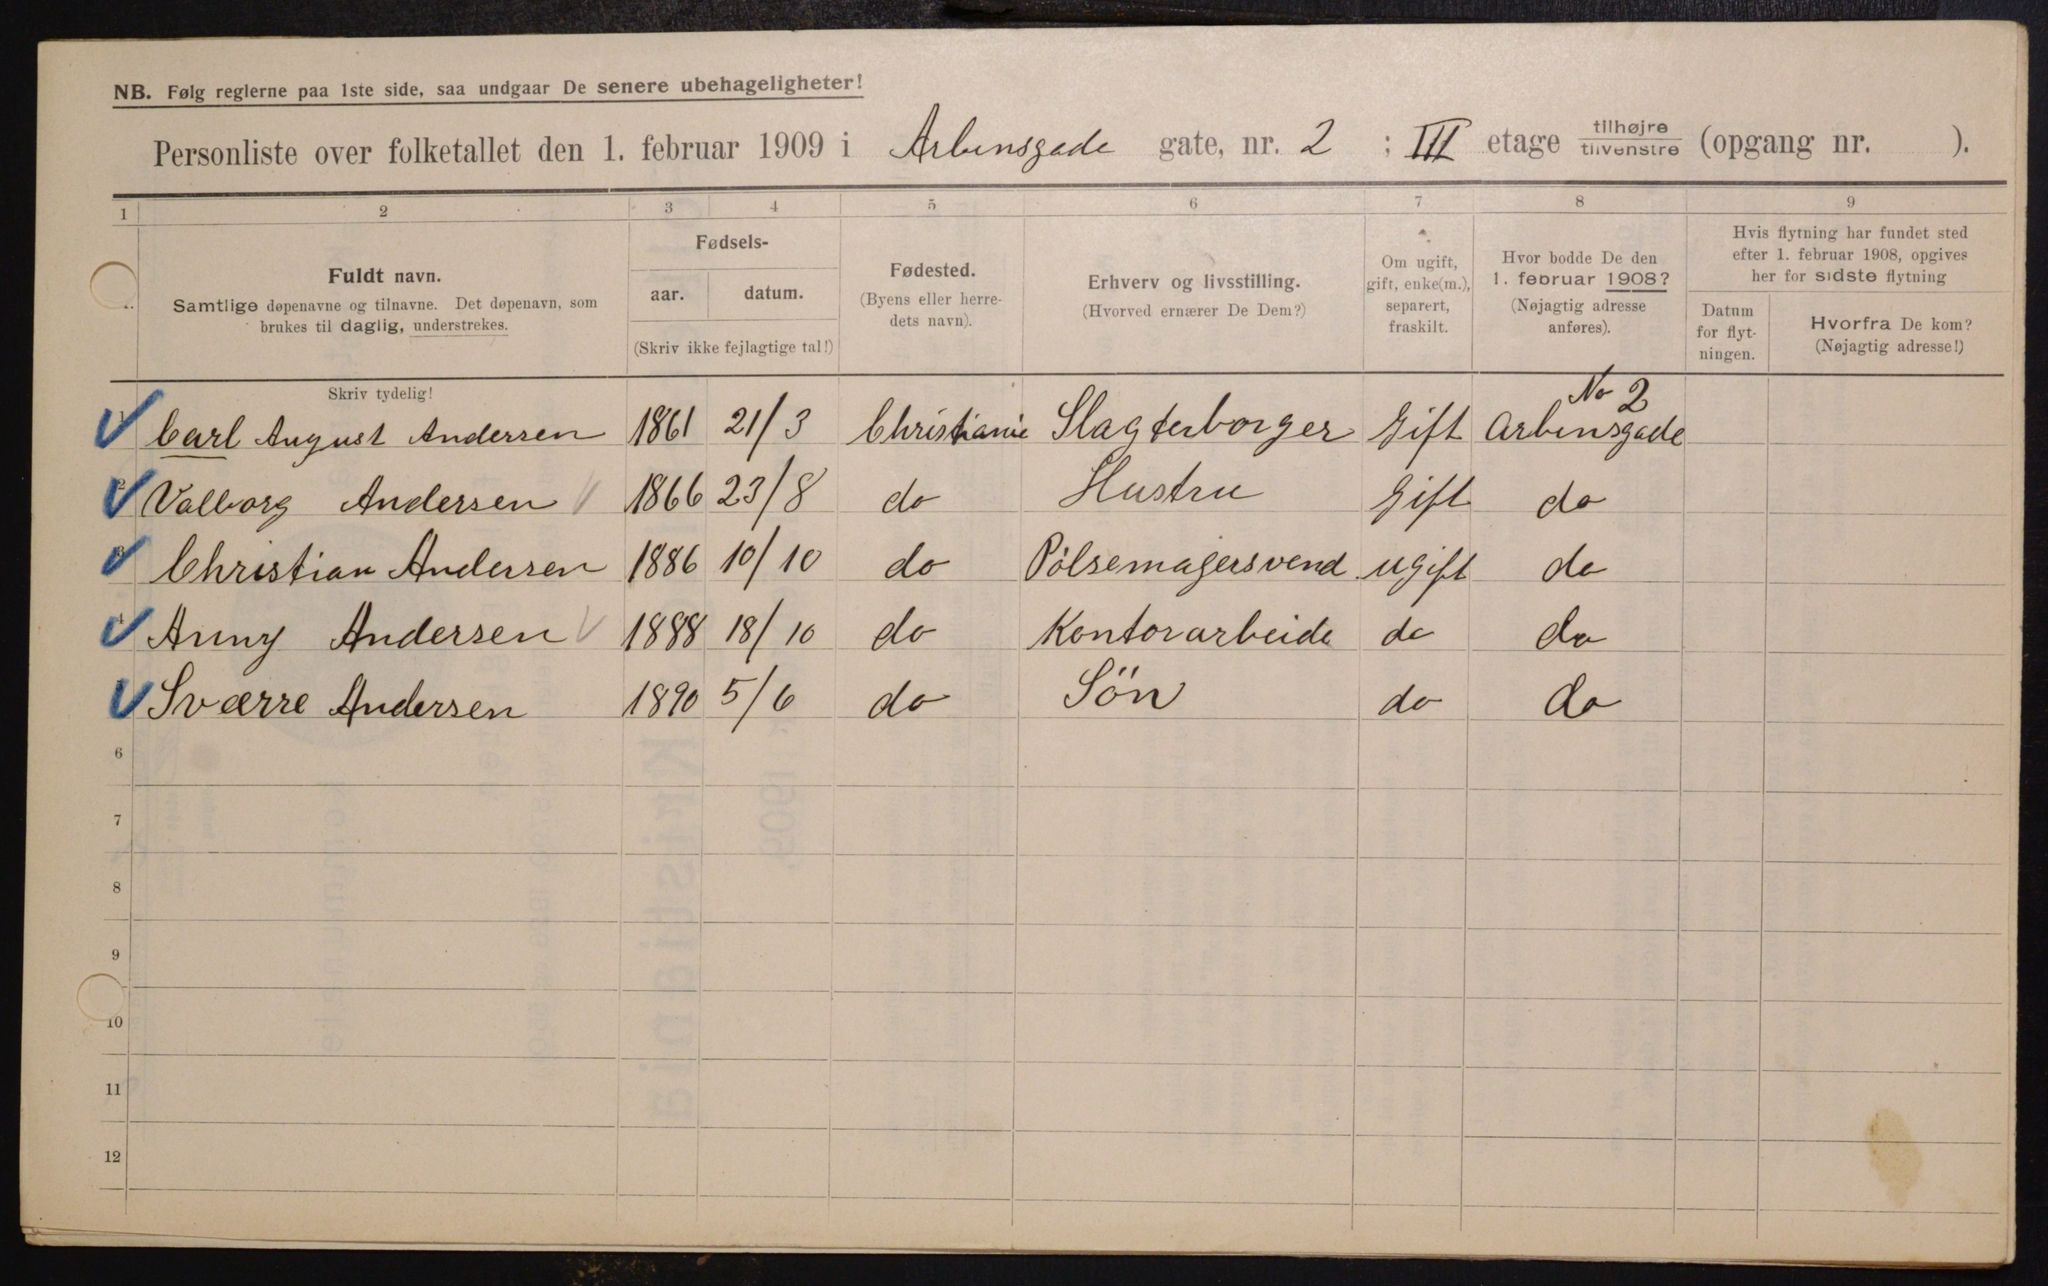 NB. Følg reglerne paa 1ste side, saa undgaar De senere ubehageligheter!
Personliste over folketallet den 1. februar 1909 i Arbinsgade gate, nr. 2 ; III etage tilhøjre tilvenstre (opgang nr. ).
1 2 3 4 5 6 7 8 9
Fuldt navn.
Samtlige døpenavne og tilnavne. Det døpenavn, som
brukes til daglig, understrekes.
Skriv tydelig!
Fødsels-
aar. datum.
(Skriv ikke fejlagtige tal!)
Fødested.
(Byens eller herre-
dets navn).
Erhverv og livsstilling.
(Hvorved ernærer De Dem?)
Om ugift,
gift, enke(m.),
separert,
fraskilt.
Hvor bodde De den
1. februar 1908?
(Nøjagtig adresse
anføres).
Hvis flytning har fundet sted
efter 1. februar 1908, opgives
her for sidste flytning
Datum
for flyt-
ningen.
Hvorfra De kom?
(Nøjagtig adresse!)
No 2
1 Carl August Andersen 1861 21/3 Christiania Slagterborger Gift Arbinsgade
2 Valborg Andersen 1866 23/8 do Hustru Gift do
3 Christian Andersen 1886 10/10 do Pölsemagersvend ugift do
4 Anny Andersen 1888 18/10 do Kontorarbeide do do
Sværre Andersen 1890 5/6 do Sön do do
6
7
8
9
10
11
12